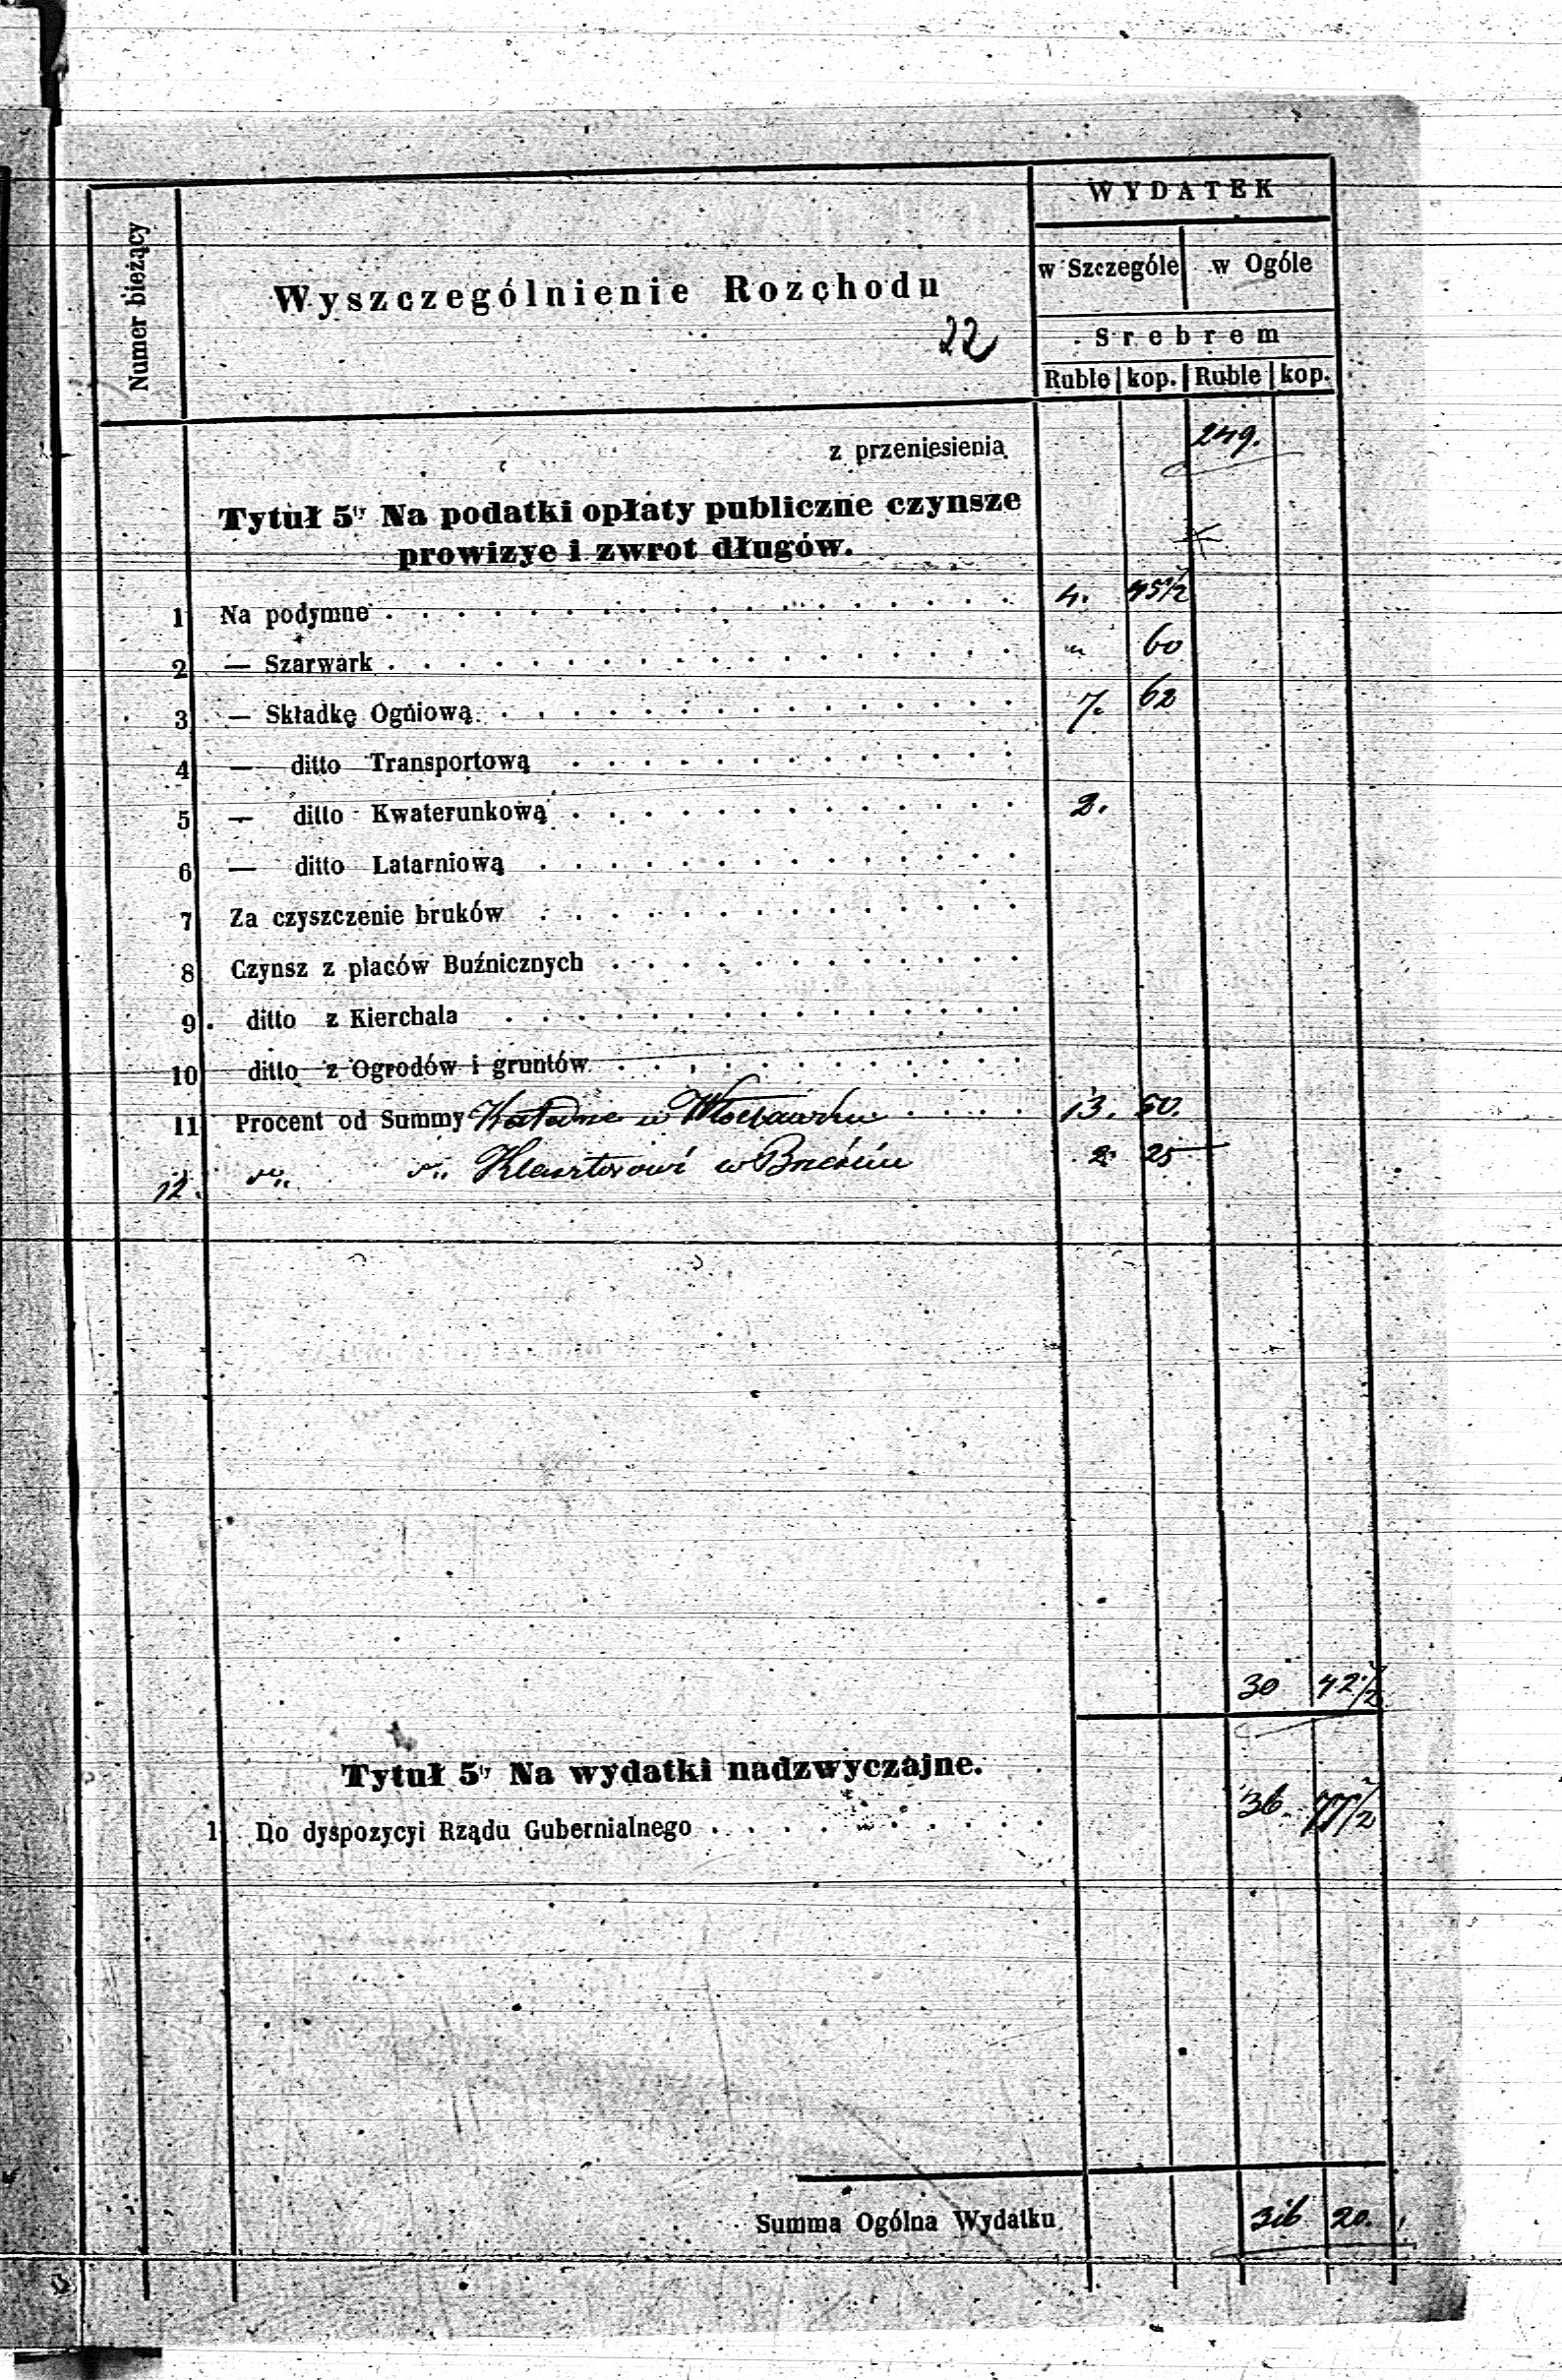 WYDATEK
Numer bieżący
Wyszczególnienie Rozchodu
w Szczególe w Ogóle
22
Srebrem
Ruble kop. Ruble kop.
z przeniesienia 249.
Tytuł 5ty Na podatki opłaty publiczne czynsze
prowizye i zwrot długów.
1 Na podymne 4. 45 1/2
2 — Szarwark „ 60
3 — Składkę Ogniową 7. 62
4 — ditto Transportową
5 — ditto Kwaterunkową 2.
6 — ditto Latarniową
7 Za czyszczenie bruków
8 Czynsz z placów Buźnicznych
9 ditto z Kierchala
10 ditto z Ogrodów i gruntów
11 Procent od Summy w Włocławku 13. 50.
12. „ „ Klasztorowi w Brześciu 2. 25
30 42 1/2
Tytuł 5ty Na wydatki nadzwyczajne.
1 Do dyspozycyi Rządu Gubernialnego 36. 77 1/2
Summa Ogólna Wydatku 316 20.